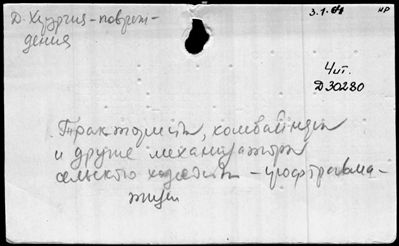 Д. Хирургия - повреж-
дения
3.1.61
нр
Чит.
Д 30280
Трактористы, комбайнеры
и другие механизаторы
сельского хозяйства - профтравма-
тизм